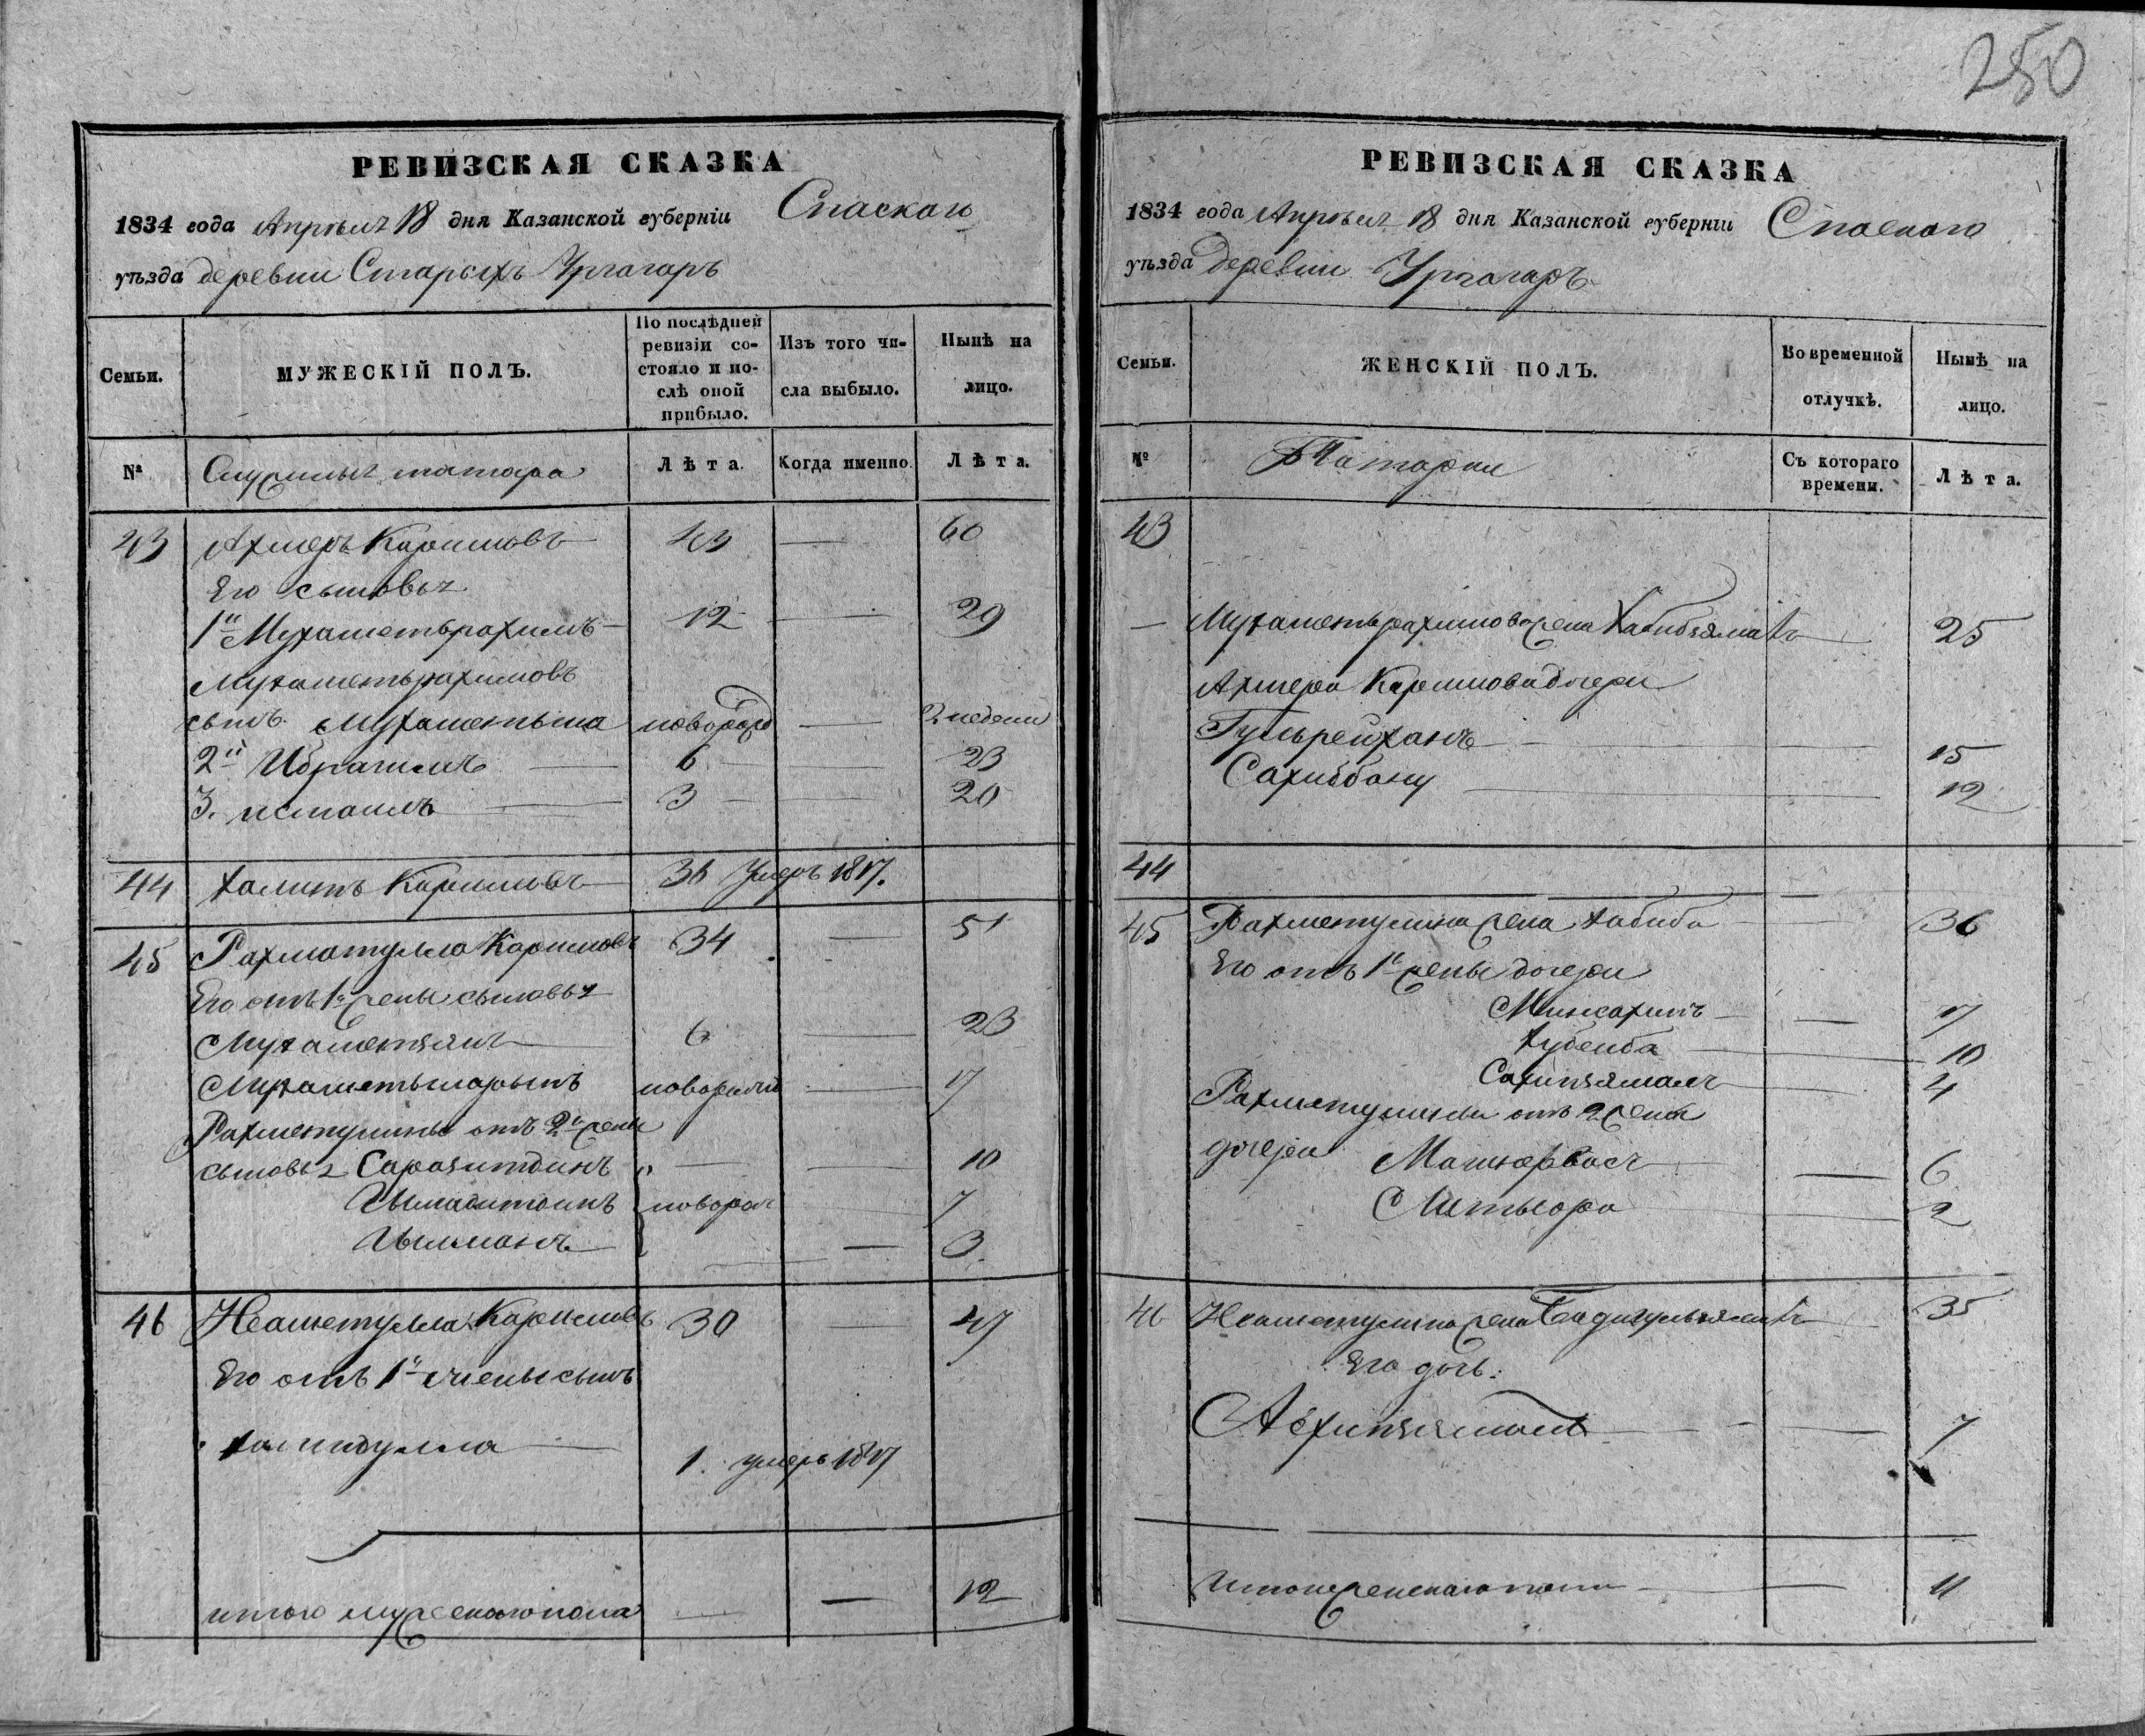 250
РЕВИЗСКАЯ СКАЗКА
1834 года Апреля 18 дня Казанской губерніи Спаскаго
уѣзда деревни Старыхъ Ургагаръ
Семьи.
МУЖЕСКІЙ ПОЛЪ.
По послѣдней ревизіи состояло и послѣ оной прибыло.
Изъ того числа выбыло.
Нынѣ на лицо.
№
татара
Лѣта.
Когда именно.
Лѣта.
43 Ахмеръ Каримовъ 43 — 60
Его сыновья
1й Мухаметьрахимъ 12 — 29
Мухаметьрахимовъ
сынъ Мухаметьша новорожд — 2 недели
2й Ибрагимъ 6 — 23
3. исмаилъ 3 — 20
44 Халитъ Каримовъ 36 Умеръ 1817.
45 Рахматулла Каримовъ 34 — 51
Его отъ 1й жены сыновья
Мухаметзянъ 6 — 23
Мухаметьшарыпъ — 17
Рахметуллины отъ 2й жены
сыновья Саразитдинъ " — 10
7
3.
46 Неаметулла Каримовъ 30 — 47
Его отъ 1й жены сынъ
Халидулла 1. умеръ 1817
итого мужескаго пола — — 12
РЕВИЗСКАЯ СКАЗКА
1834 года Апреля 18 дня Казанской губерніи Спаскаго
уѣзда деревни Ургагаръ
Семьи.
ЖЕНСКІЙ ПОЛЪ.
Во временной отлучкѣ.
Нынѣ на лицо.
№
Татарки
Съ котораго времени.
Лѣта.
43
— Мухаметьрахимова жена Хабибзямалъ 25
Ахмера Каримова дочери
Гульрейханъ — 15
Сахиббану 12
44
45 Рахметуллина жена Хабиба — 36
Его отъ 1й жены дочери
— 17
Хубейба — 10
Сахипзямалъ 4
Рахметуллины отъ 2 жены
дочери — 6
2
46 Неаметуллина жена Бадигульзямалъ 35
Его дочь:
— 7
Итого женскаго пола — 11